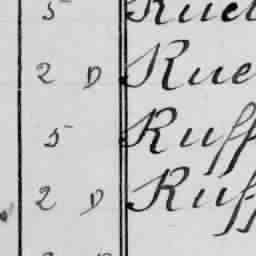 5 Ruel
2 D Rue
5 Ruff
2 D Ruff